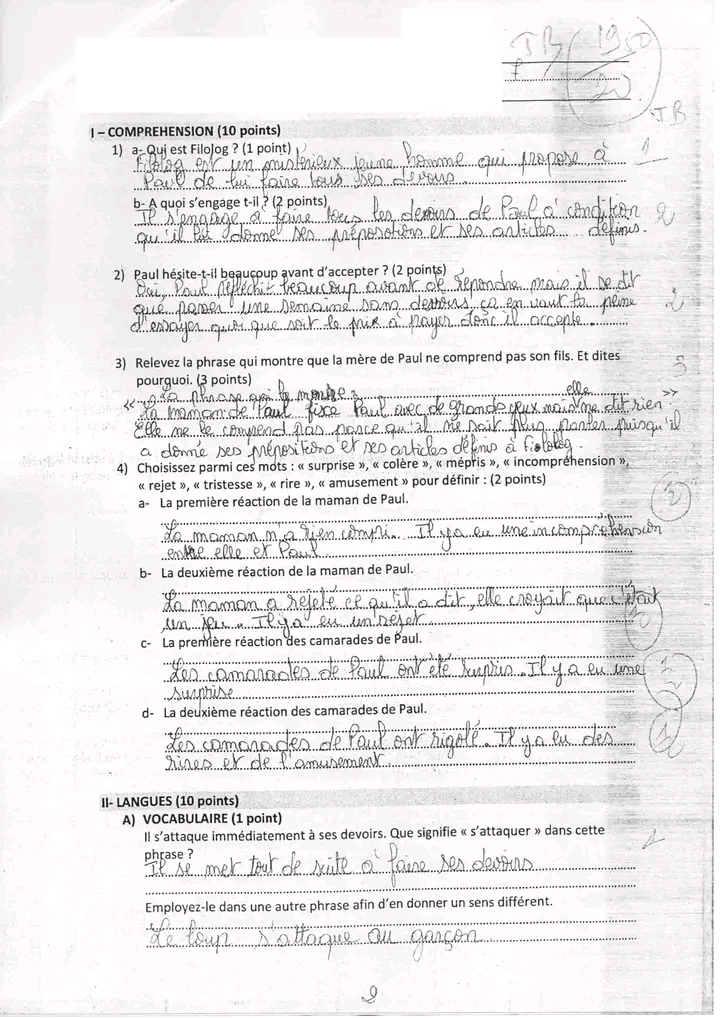 TB 19,50
20
TB
I – COMPREHENSION (10 points)
1) a- Qui est Filolog ? (1 point)
Filolog est un mistérieux jeune homme qui propose à
Paul de lui faire tous ses devoirs.
1
b- A quoi s'engage t-il ? (2 points)
Il s'engage à faire tous les devoirs de Paul à condition
qu'il lui donne ses préposotions et ses articles définis.
2
2) Paul hésite-t-il beaucoup avant d'accepter ? (2 points)
Oui, Paul réfléchit beaucoup avant de répondre mais il se dit
que passer une semaine sans devoirs ça en vaut la peine
d'essayer quoi que soit le prix à payer donc il accepte.
2
3) Relevez la phrase qui montre que la mère de Paul ne comprend pas son fils. Et dites
pourquoi. (3 points)
3
La phrase qui le montre :
« La maman de Paul fixe Paul avec de grands yeux mais elle ne dit rien »
Elle ne le comprend pas parce qu'il ne sait plus parler puisqu'il
a donné ses prépositions et ses articles définis à Filolog.
4) Choisissez parmi ces mots : « surprise », « colère », « mépris », « incompréhension »,
« rejet », « tristesse », « rire », « amusement » pour définir : (2 points)
a- La première réaction de la maman de Paul.
La maman n'a rien compri. Il y a eu une incompréhension
entre elle et Paul
b- La deuxième réaction de la maman de Paul.
La maman a rejeté ce qu'il a dit, elle croyait que c'était
un jeu. Il y a eu un rejet.
c- La première réaction des camarades de Paul.
Les camarades de Paul ont été surpris. Il y a eu une
surprise
d- La deuxième réaction des camarades de Paul.
Les camarades de Paul ont rigolé. Il y a eu des
rires et de l'amusement
II- LANGUES (10 points)
A) VOCABULAIRE (1 point)
Il s'attaque immédiatement à ses devoirs. Que signifie « s'attaquer » dans cette
phrase ?
1
Il se met tout de suite à faire ses devoirs
Employez-le dans une autre phrase afin d'en donner un sens différent.
Le loup s'attaque au garçon